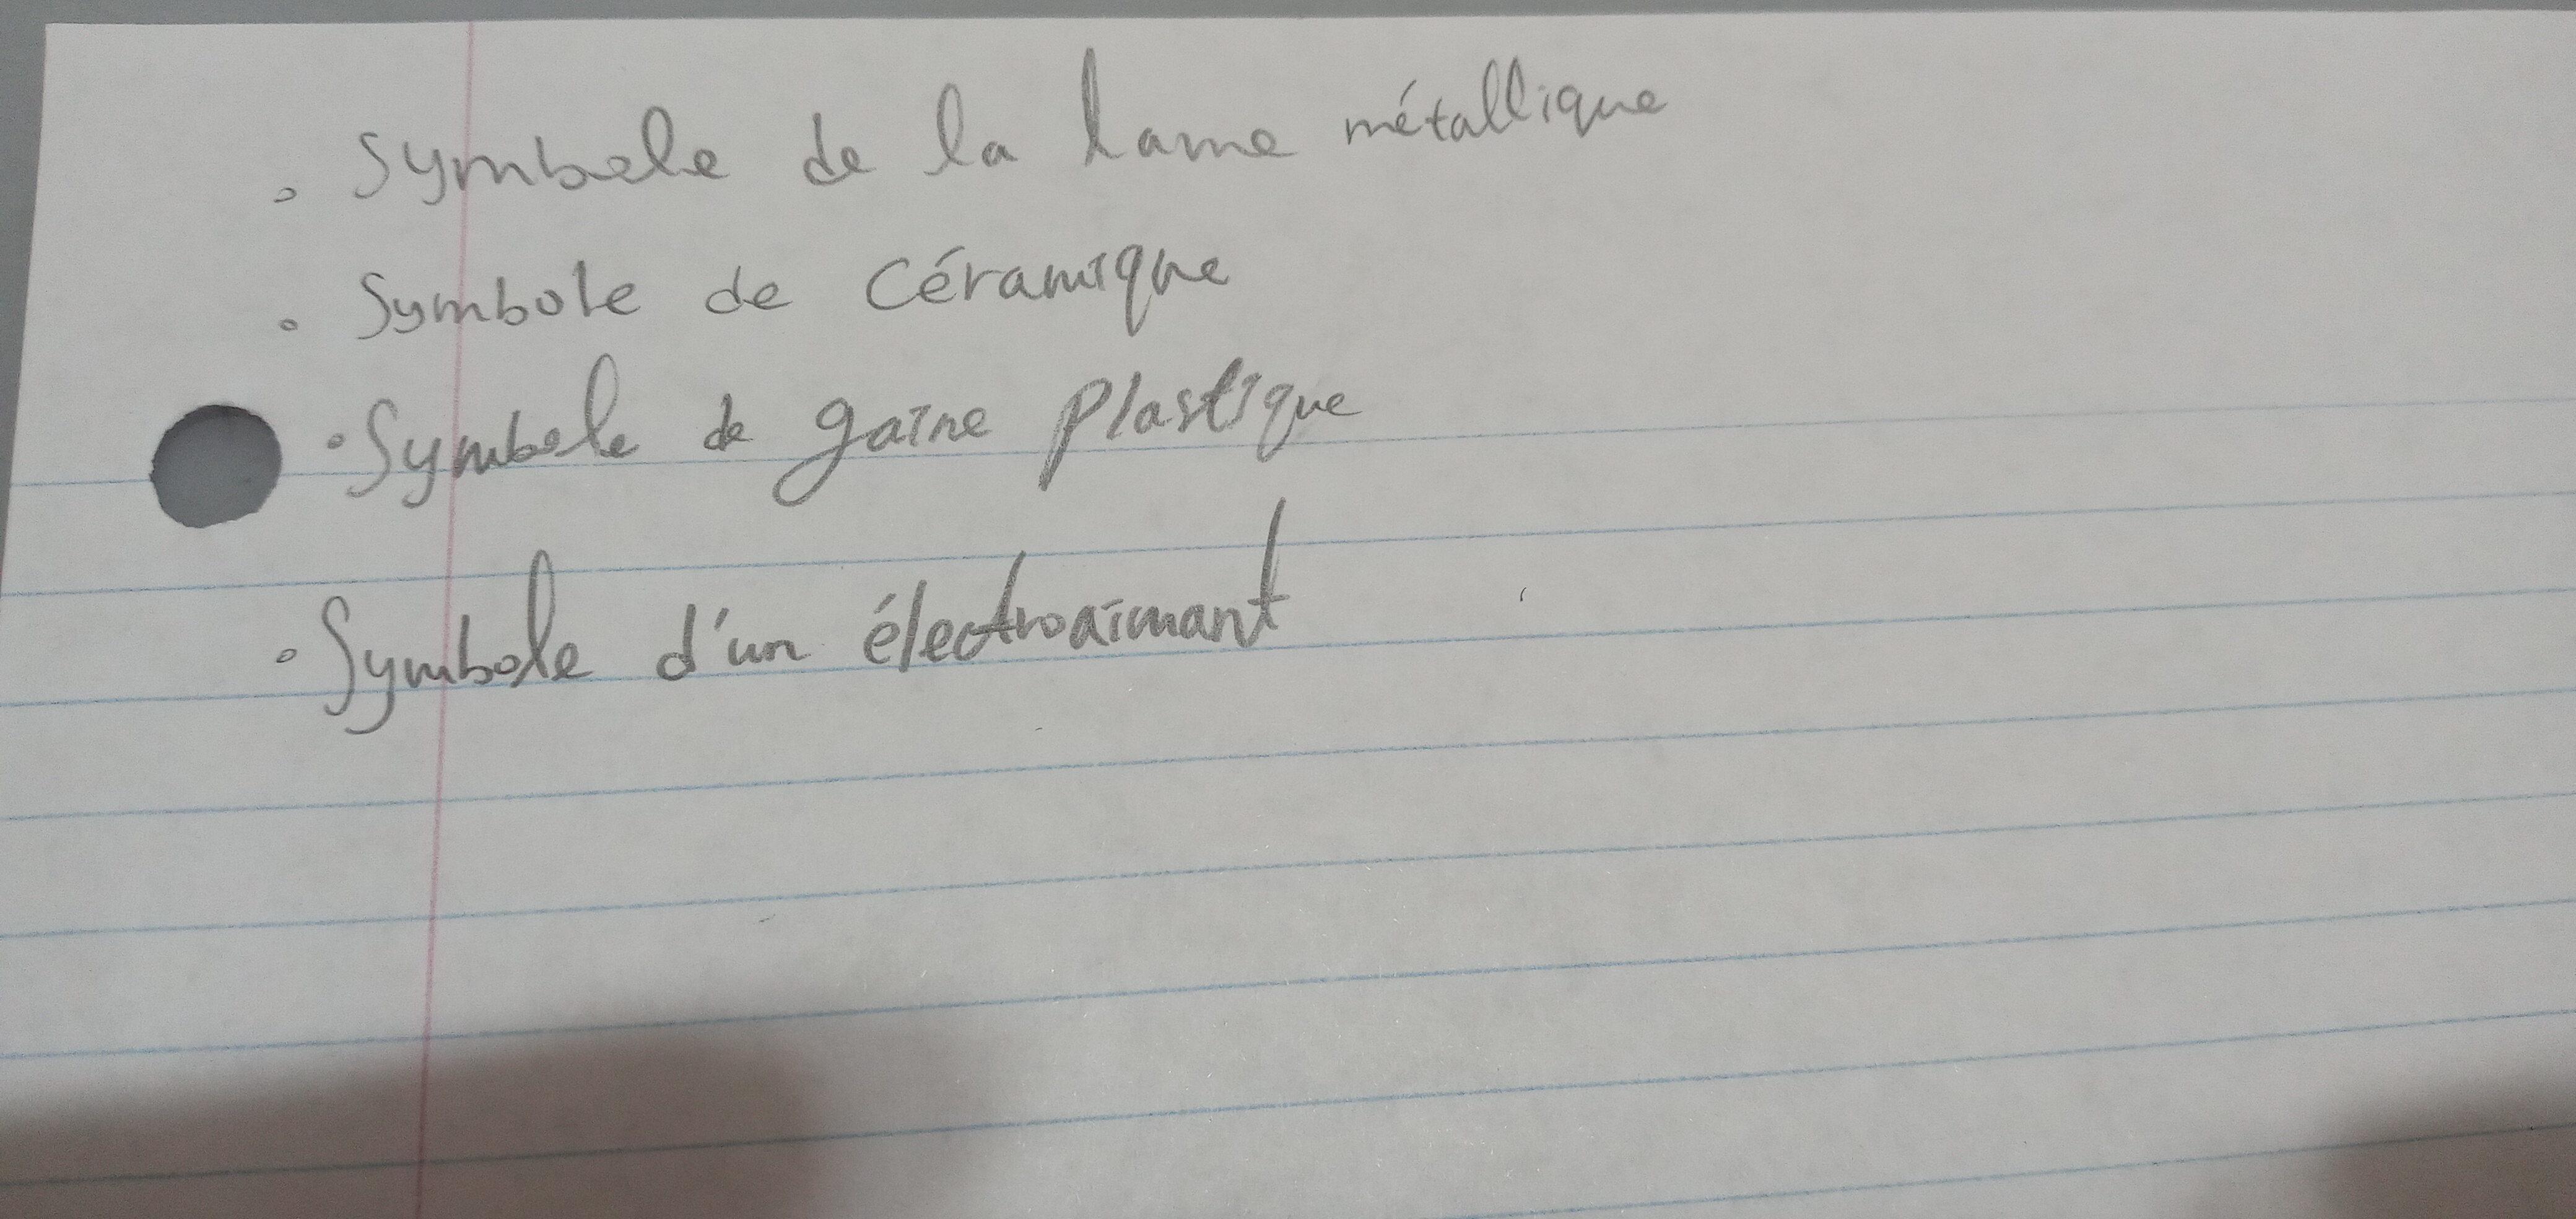 . Symbole de la lame métallique
. Symbole de céramique
. Symbole de gaine plastique
. Symbole d'un électroaimant